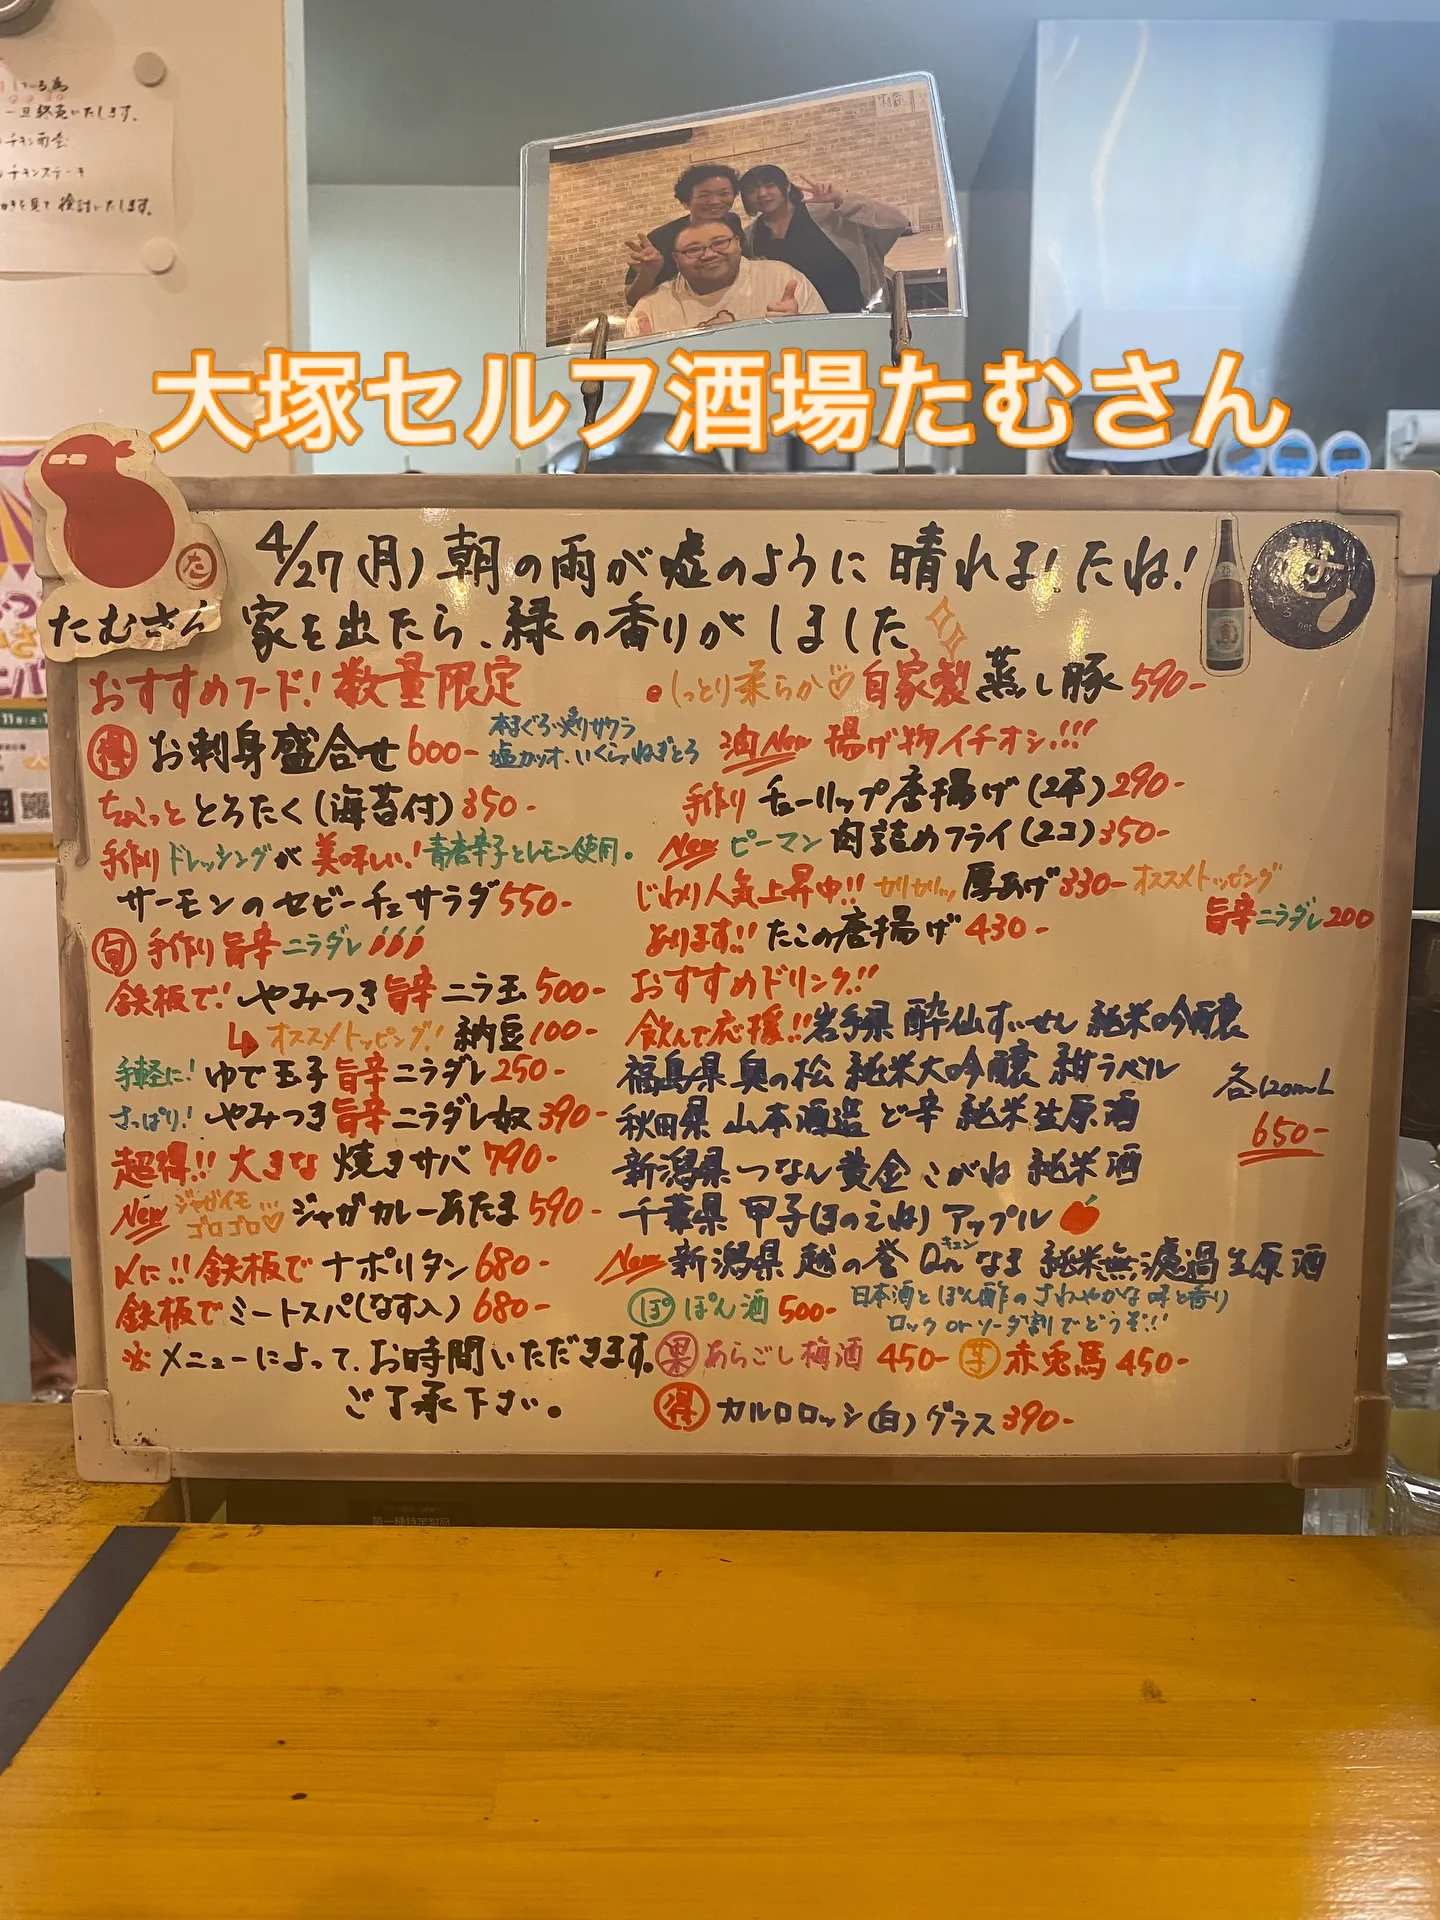 している為
一旦終売いたします。
チキン南蛮
チキンステーキ
を見て検討いたします。
大塚セルフ酒場たむさん
た
たむさん
4/27(月)朝の雨が嘘のように晴れましたね!
家を出たら、緑の香りがしました
おすすめフード!数量限定
得 お刺身盛合せ600- 本まぐろ・炙りサワラ
塩カツオ・いくら・ねぎとろ
ちょこっととろたく(海苔付)350-
手作りドレッシングが美味しい!青唐辛子とレモン使用。
サーモンのセビーチェサラダ550-
旬 手作り旨辛ニラダレ
鉄板で!やみつき旨辛ニラ玉500-
オススメトッピング!納豆100-
手軽に!ゆで玉子旨辛ニラダレ250-
さっぱり!やみつき旨辛ニラダレ奴390-
超得!!大きな焼きサバ790-
New ジャガイモ…ゴロゴロ♡ ジャガカレーあたま590-
〆に!!鉄板でナポリタン680-
鉄板でミートスパ(なす入)680-
※メニューによって、お時間いただきます。
ご了承下さい。
しっとり柔らか♡自家製蒸し豚590-
油New 揚げ物イチオシ!!!
手作りチューリップ唐揚げ(2本)290-
New ピーマン肉詰めフライ(2コ)350-
じわり人気上昇中!!ガリガリッ厚あげ330-オススメトッピング
旨辛ニラダレ200
あります!!たこの唐揚げ430-
おすすめドリンク!!
飲んで応援!!岩手県 酔仙すいせん 純米吟醸
福島県 奥の松 純米大吟醸 紺ラベル
秋田県 山本酒造 ど辛 純米生原酒
新潟県 つなん黄金こがね 純米酒
千葉県 甲子(きのえね)アップル
New 新潟県 越の誉 Qn キュン なま 純米無濾過生原酒
各120mL
650-
ぽ ぽん酒500- 日本酒とぽん酢のさわやかな味と香り
ロックorソーダ割でどうぞ!!
果 あらごし梅酒 450- 芋 赤兎馬 450-
得 カルロロッシ(白)グラス390-